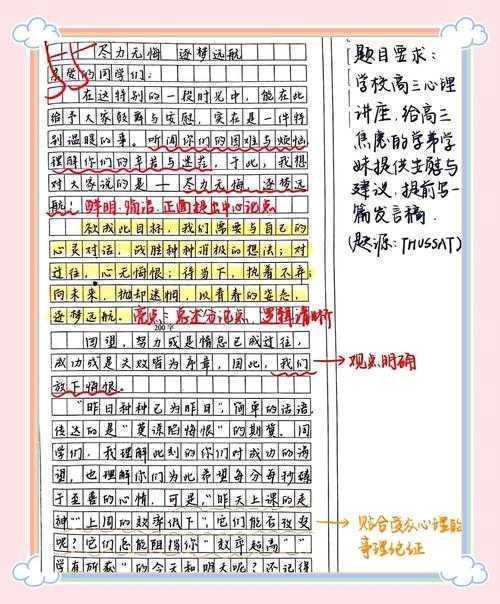 55
尽力无悔 逐梦远航
亲爱的同学们:
在这特别的一段时光中,能在此
给予大家鼓舞与安慰,实在是一件特
别温暖的事。听闻你们的困难与烦恼
理解你们的辛苦与迷茫,于此,我想
对大家说的是——尽力无悔,逐梦远
航! 鲜明、简洁、正面提出中心论点
欲成此目标,我们需要与自己的
心灵对话,战胜种种消极的想法:对
过往,心无悔恨;待当下,执着不弃;
向未来,抛却迷惘,以青春的姿态,
逐梦远航。亮点:总述分论点,逻辑清晰
200字
回望,努力或是惰怠已成过往,
成功或是失败皆为序章,因此,我们
放下悔恨。
观点明确
"昨日种种已为昨日",简单的话语,
传达的是"莫深陷悔恨"的期冀。同
学们,我理解此刻的你们对成功的渴
望,也理解你们为此希望每分每秒臻
于至善的心情,可是,"昨天上课的走
神""上周的效率低下",它们能否改变
呢?它们怎能阻碍你"效率超高""
学有所获"的今天和明天呢?还记得
贴合受众心理的
说理论证
题目要求:
学校高三心理
讲座,给高三
焦虑的学弟学
妹提供安慰与
建议,提前写一
篇发言稿.
(题源:THUSSAT)